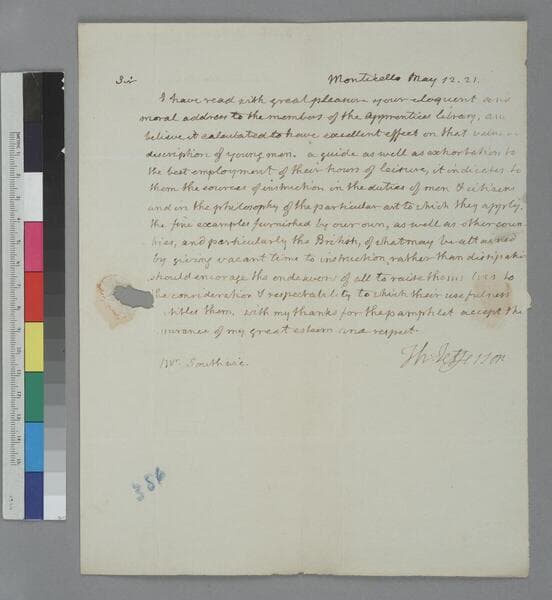 Sir Monticello May 12. 21.
I have read with great pleasure your eloquent and
moral address to the members of the Apprentices library, and
believe it calculated to have excellent effect on that valuable
description of young men. a guide as well as exhortation to
the best employment of their hours of leisure, it indicates to
them the sources of instruction in the duties of men & citizens
and in the philosophy of the particular art to which they apply.
the fine examples furnished by our own, as well as other coun
tries, and particularly the British, of what may be attained
by giving vacant time to instruction, rather than dissipation
should encourage the endeavors of all to raise themselves to
the consideration & respectability to which their usefulness
titles them. with my thanks for the pamphlet accept the
surance of my great esteem and respect.
Th: Jefferson
Mr. Southwic.
356